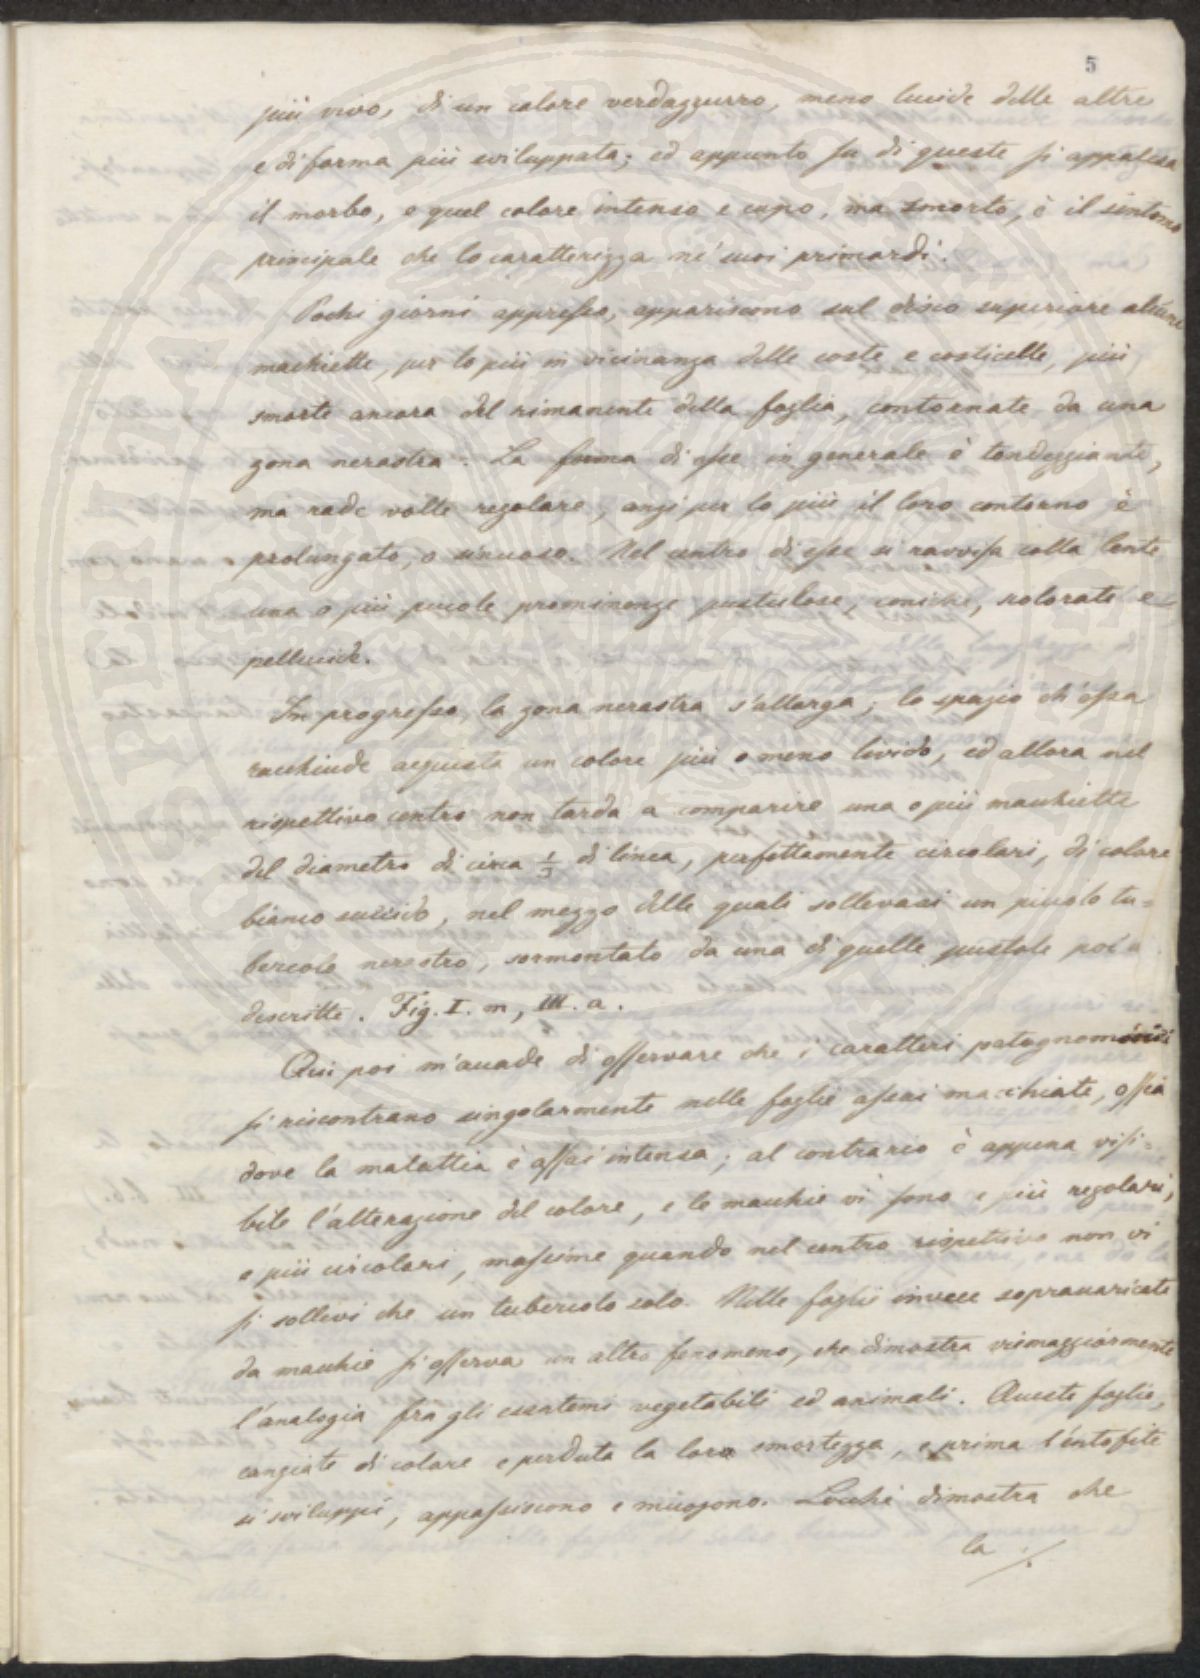 5
più vivo, di un colore verdazzurro, meno lucide delle altre
e di forma più sviluppata; ed appunto su di queste si appalesa
il morbo, e quel colore intenso e cupo, ma smorto, è il sintomo
principale che lo caratterizza ne' suoi primordi.
Pochi giorni appresso, appariscono sul disco superiore alcune
machiette, per lo più in vicinanza delle coste e costicelle, più
smorte ancora del rimanente della foglia, contornate da una
zona nerastra. La forma di esse in generale è tondeggiante,
ma rade volte regolare, anzi per lo più il loro contorno è
prolungato, o sinuoso. Nel centro di esse si ravvisa colla lente
una o più picole prominenze pustulose, coniche, colorate e
pellucide.
In progresso, la zona nerastra s'allarga; lo spazio ch'essa
racchiude acquista un colore più o meno livido, ed allora nel
rispettivo centro non tarda a comparire una o più macchiette
del diametro di circa 1/3 di linea, perfettamente circolari, di colore
bianco succido, nel mezzo delle quali sollevasi un piccolo tu=
bercolo nerastro, sormontato da una di quelle pustole poc'a
descritte. Fig. I. m, III. a.
Qui poi m'accade di osservare che i caratteri patognomonici
si riscontrano singolarmente nelle foglie assai macchiate, ossia
dove la malattia è assai intensa; al contrario è appena visi=
bile l'alterazione del colore, e le macchie vi sono e più regolari,
e più circolari, massime quando nel centro rispettivo non vi
si sollevi che un tubercolo solo. Nelle foglie invece sopracaricate
da macchie si osserva un altro fenomeno, che dimostra viemaggiormente
l'analogia fra gli esantemi vegetabili ed animali. Queste foglie,
cangiate di colore e perduta la loro smortezza, e prima l'entofite
si sviluppi, appassiscono e muojono. Locchè dimostra che
la ./.